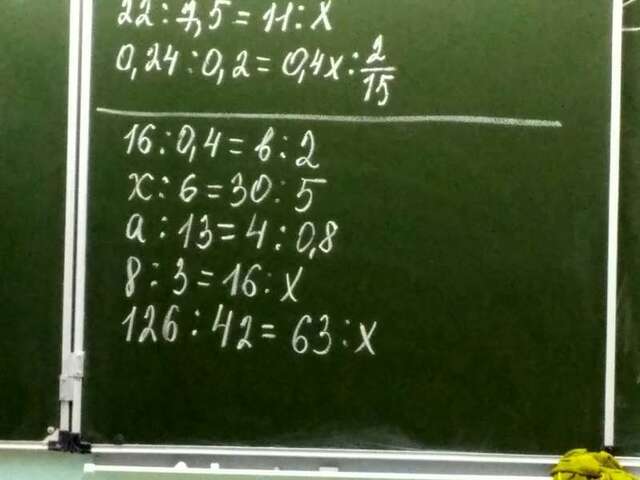 22 : 7,5 = 11 : x
0,24 : 0,2 = 0,4x : 2/15
16 : 0,4 = в : 2
x : 6 = 30 : 5
a : 13 = 4 : 0,8
8 : 3 = 16 : x
126 : 42 = 63 : x